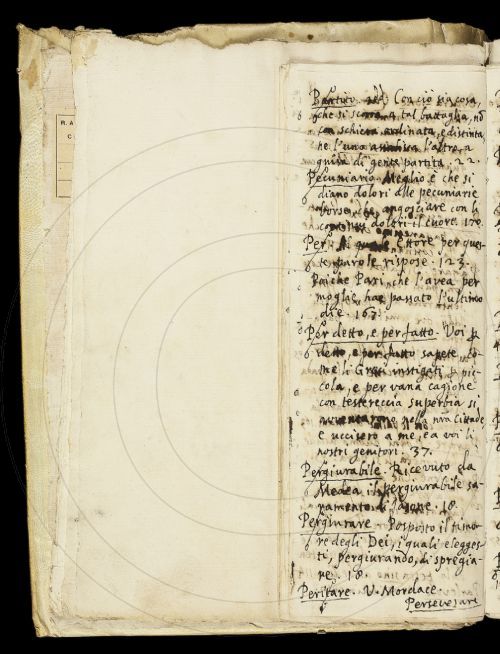 R. A
C.
Partito. add. Conciò sia cosa,
che si scorra a tal battaglia, nō
con schiera ordinata, e distinta
he l'una l'altra, a
guisa di gente partita. 22.
Pecuniario. Meglio è che si
diano dolori alle pecuniarie
borse, che angosciare con li
dolori il cuore. 170.
Per. Al quale Ettore per ques-
te parole rispose. 123.
Poi che Pari, che l'avea per
moglie, hae passato l'ultimo
die. 167.
Per detto, e per fatto. Voi p
detto, e per fatto sapete, co-
me li Greci instigati p pic-
cola, e per vana cagione
con testereccia superbia si
nella nrā cittade
e uccisero a me, e a voi li
nostri genitori. 37.
Pergiurabile. Ricevuto da
Medea il pergiurabile sa-
ramento di Jasone. 18.
Pergiurare. Posposto il timo-
re degli Dei, i quali elegges-
ti, pergiurando, di spregia-
re. 18.
Peritare. V. Mordace.
Perseverare